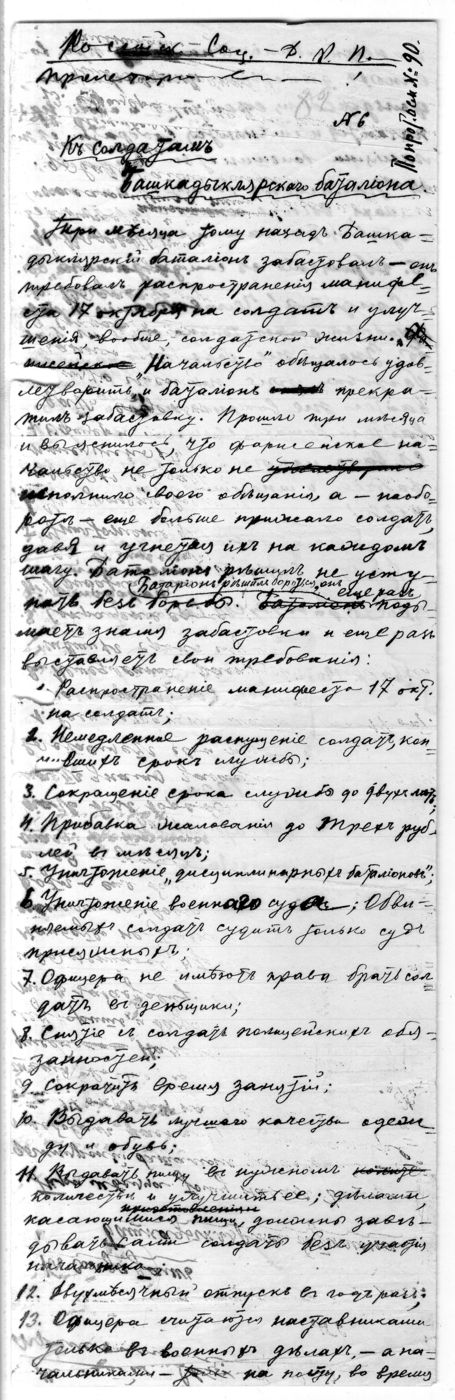 Соц. - Д. Р. П.
№ 6
По прот. осм № 90.
Къ солдатамъ
Башкадыклярскаго баталіона.
Три мѣсяца тому назадъ Башка-
дыклярскій баталіонъ забастовалъ — онъ
требовалъ распространенія манифе-
ста 17 октября на солдатъ и улуч-
шенія вообще, солдатской жизни.
„Начальство" обѣщалось удов-
летворить и баталіонъ прекра-
тилъ забастовку. Прошли три мѣсяца
и выяснилось, что фарисейское на-
чальство не только не
исполнило своего обѣщанія, а — наобо-
ротъ — еще больше прижало солдатъ,
давя и угнетая ихъ на каждомъ
шагу. Баталіонъ рѣшилъ не усту-
Баталіонъ рѣшилъ бороться, онъ
пать безъ борьбы. Баталіонъ еще разъ поды-
маетъ знамя забастовки и еще разъ
выставляетъ свои требованія:
1. Распространеніе манифеста 17 окт.
на солдатъ;
2. Немедленное распущеніе солдатъ, кон-
чившихъ срокъ службы;
3. Сокращеніе срока службы до двухъ лѣтъ;
4. Прибавка жалованія до трехъ руб-
лей въ мѣсяцъ;
5. Уничтоженіе „дисциплинарныхъ баталіоновъ";
6. Уничтоженіе военнаго суда; Обви-
няемыхъ солдатъ судитъ только судъ
присяжныхъ;
7. Офицера не имѣютъ права брать сол-
датъ въ деньщики;
8. Снятіе съ солдатъ полицейскихъ обя-
занностей;
9. Сократить время занятій;
10. Выдавать лучшаго качества одеж-
ду и обувь;
11. Выдавать пищу въ нужномъ
количествѣ и улучшить ее; дѣлами,
касающимися пищи, должны завѣ-
дывать сами солдаты безъ участія
начальника
12. Двухмѣсячный отпускъ въ годъ разъ;
13. Офицера считаются наставниками
только въ военныхъ дѣлахъ, — а на-
чальниками — на посту, во время